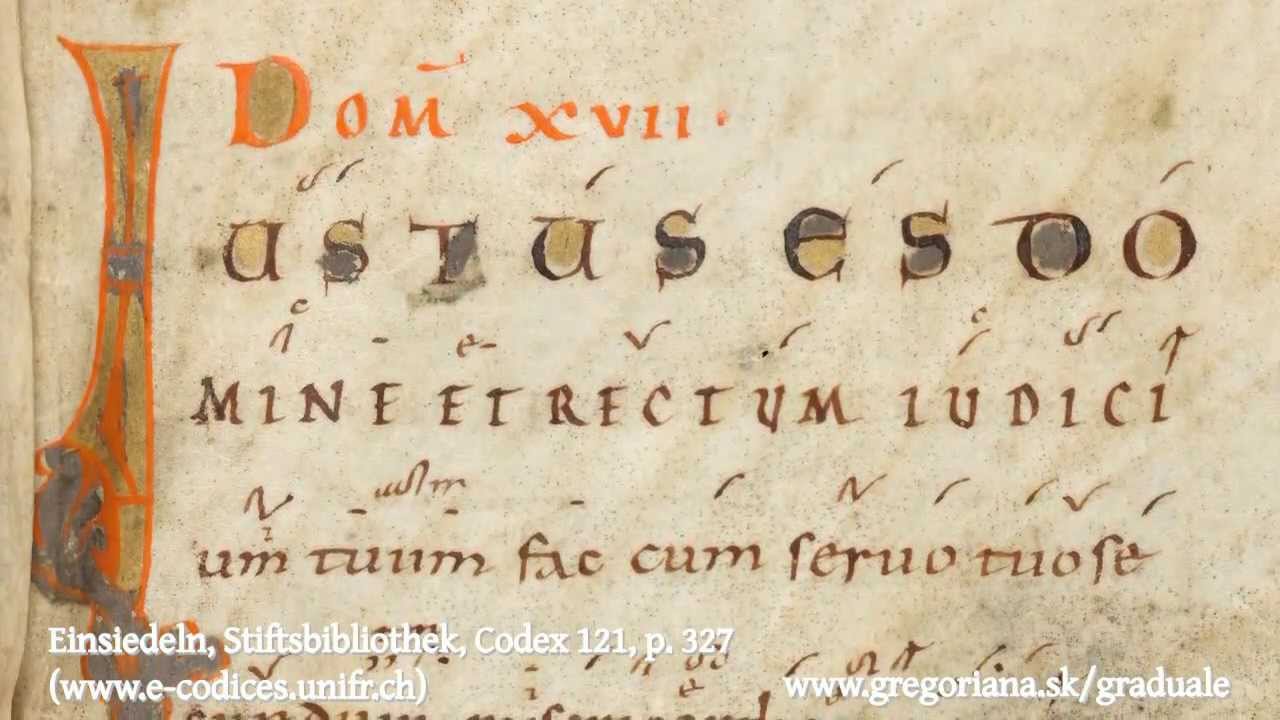 DOM̄ XVII·
IUSTUS ES DO
MINE ET RECTUM IUDICI
um tuum fac cum seruo tuo se
cundum
Einsiedeln, Stiftsbibliothek, Codex 121, p. 327
(www.e-codices.unifr.ch)
www.gregoriana.sk/graduale